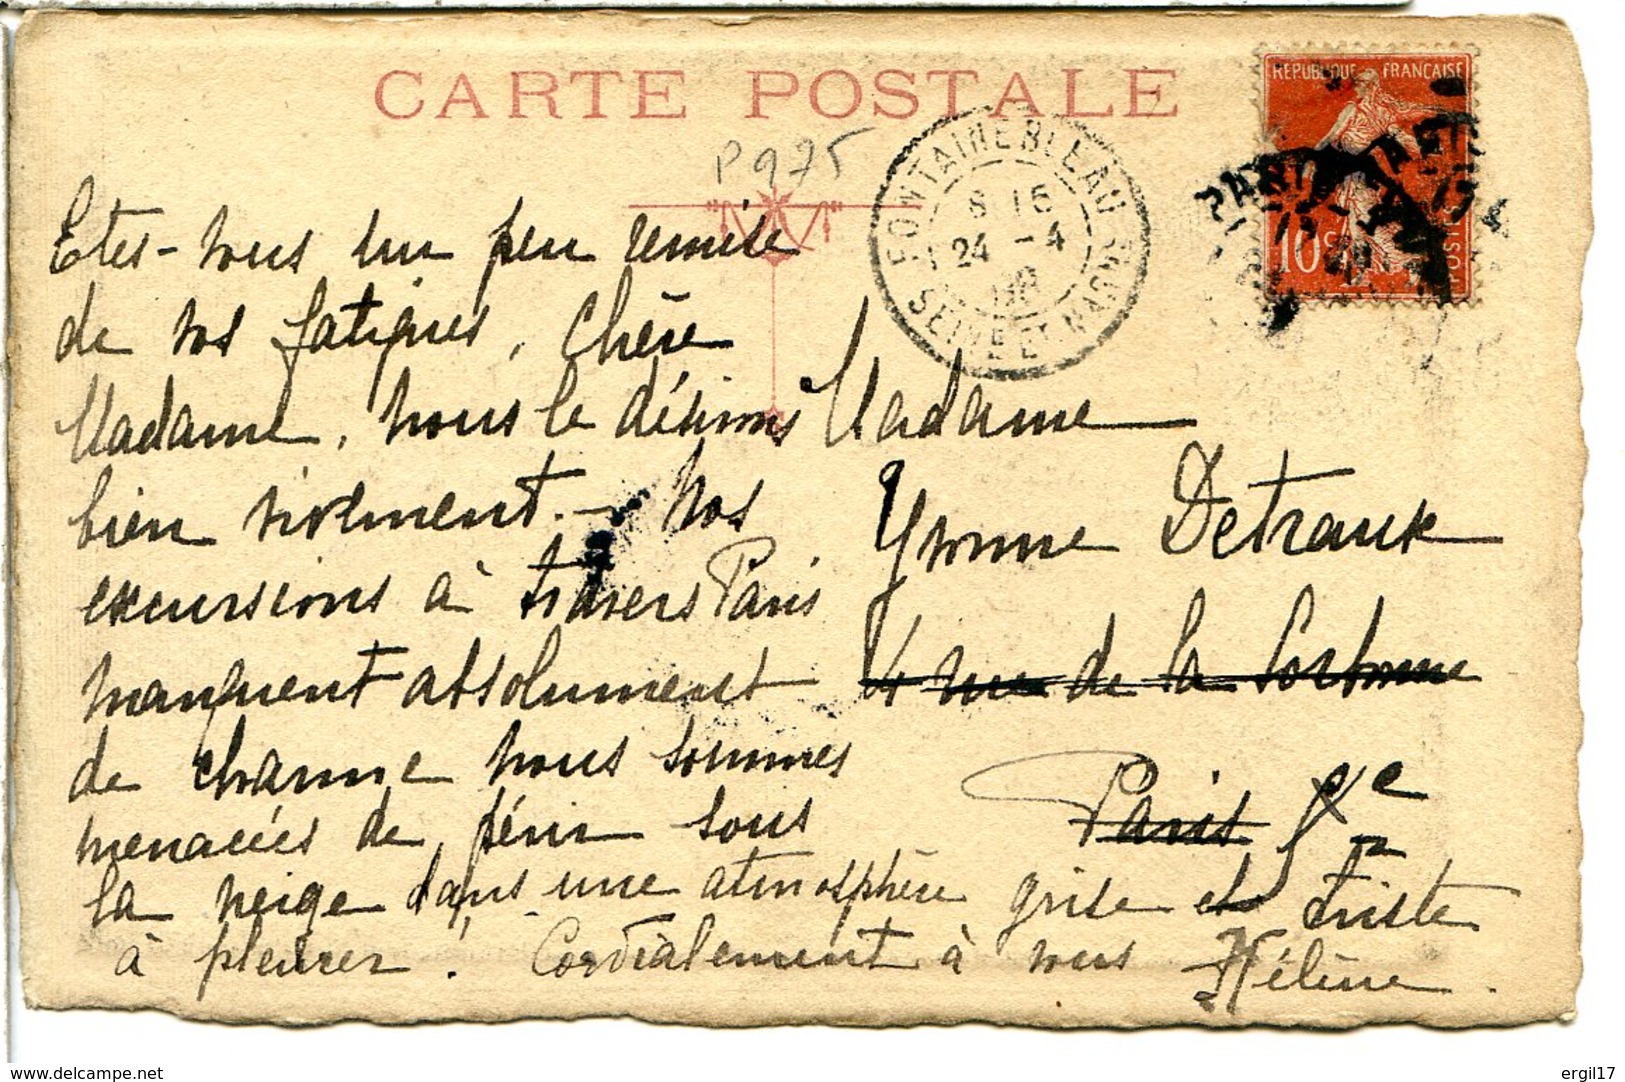 CARTE POSTALE
P 975
FONTAINEBLEAU
8 15
24 - 4
SEINE ET MARNE
REPUBLIQUE FRANÇAISE
10 c
POSTES
PARIS
Etes-vous un peu remise
de vos fatigues, Chère
Madame, nous le désirons
bien vivement. - Nos
excursions à travers Paris
manquent absolument
de charme nous sommes
menacées de périr sous
la neige dans une atmosphère grise et triste
à pleurer! Cordialement à vous Hélène.
Madame
Yvonne Detraux
4 rue de la Sorbonne
Paris Ve
www.delcampe.net
ergil17